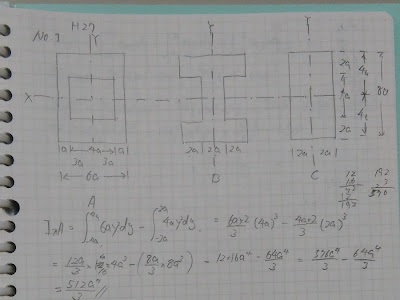 No 1 H27
Y Y Y
X
2a
4a
2a
4a
4a
8a
a 4a a
3a 3a
6a
2a 2a 2a
2a 2a
A B C
I_xA = ∫_{-4a}^{4a} 6ay²dy - ∫_{-2a}^{2a} 4ay²dy = 6a×2/3 (4a)³ - 4a×2/3 (2a)³
= 12a/3 × 4a³ - (8a/3 × 8a³) = 12×16a⁴ - 64a⁴/3 = 576a⁴/3 - 64a⁴/3
= 512a⁴/3 //
12
16
72
12
192
192
3
576